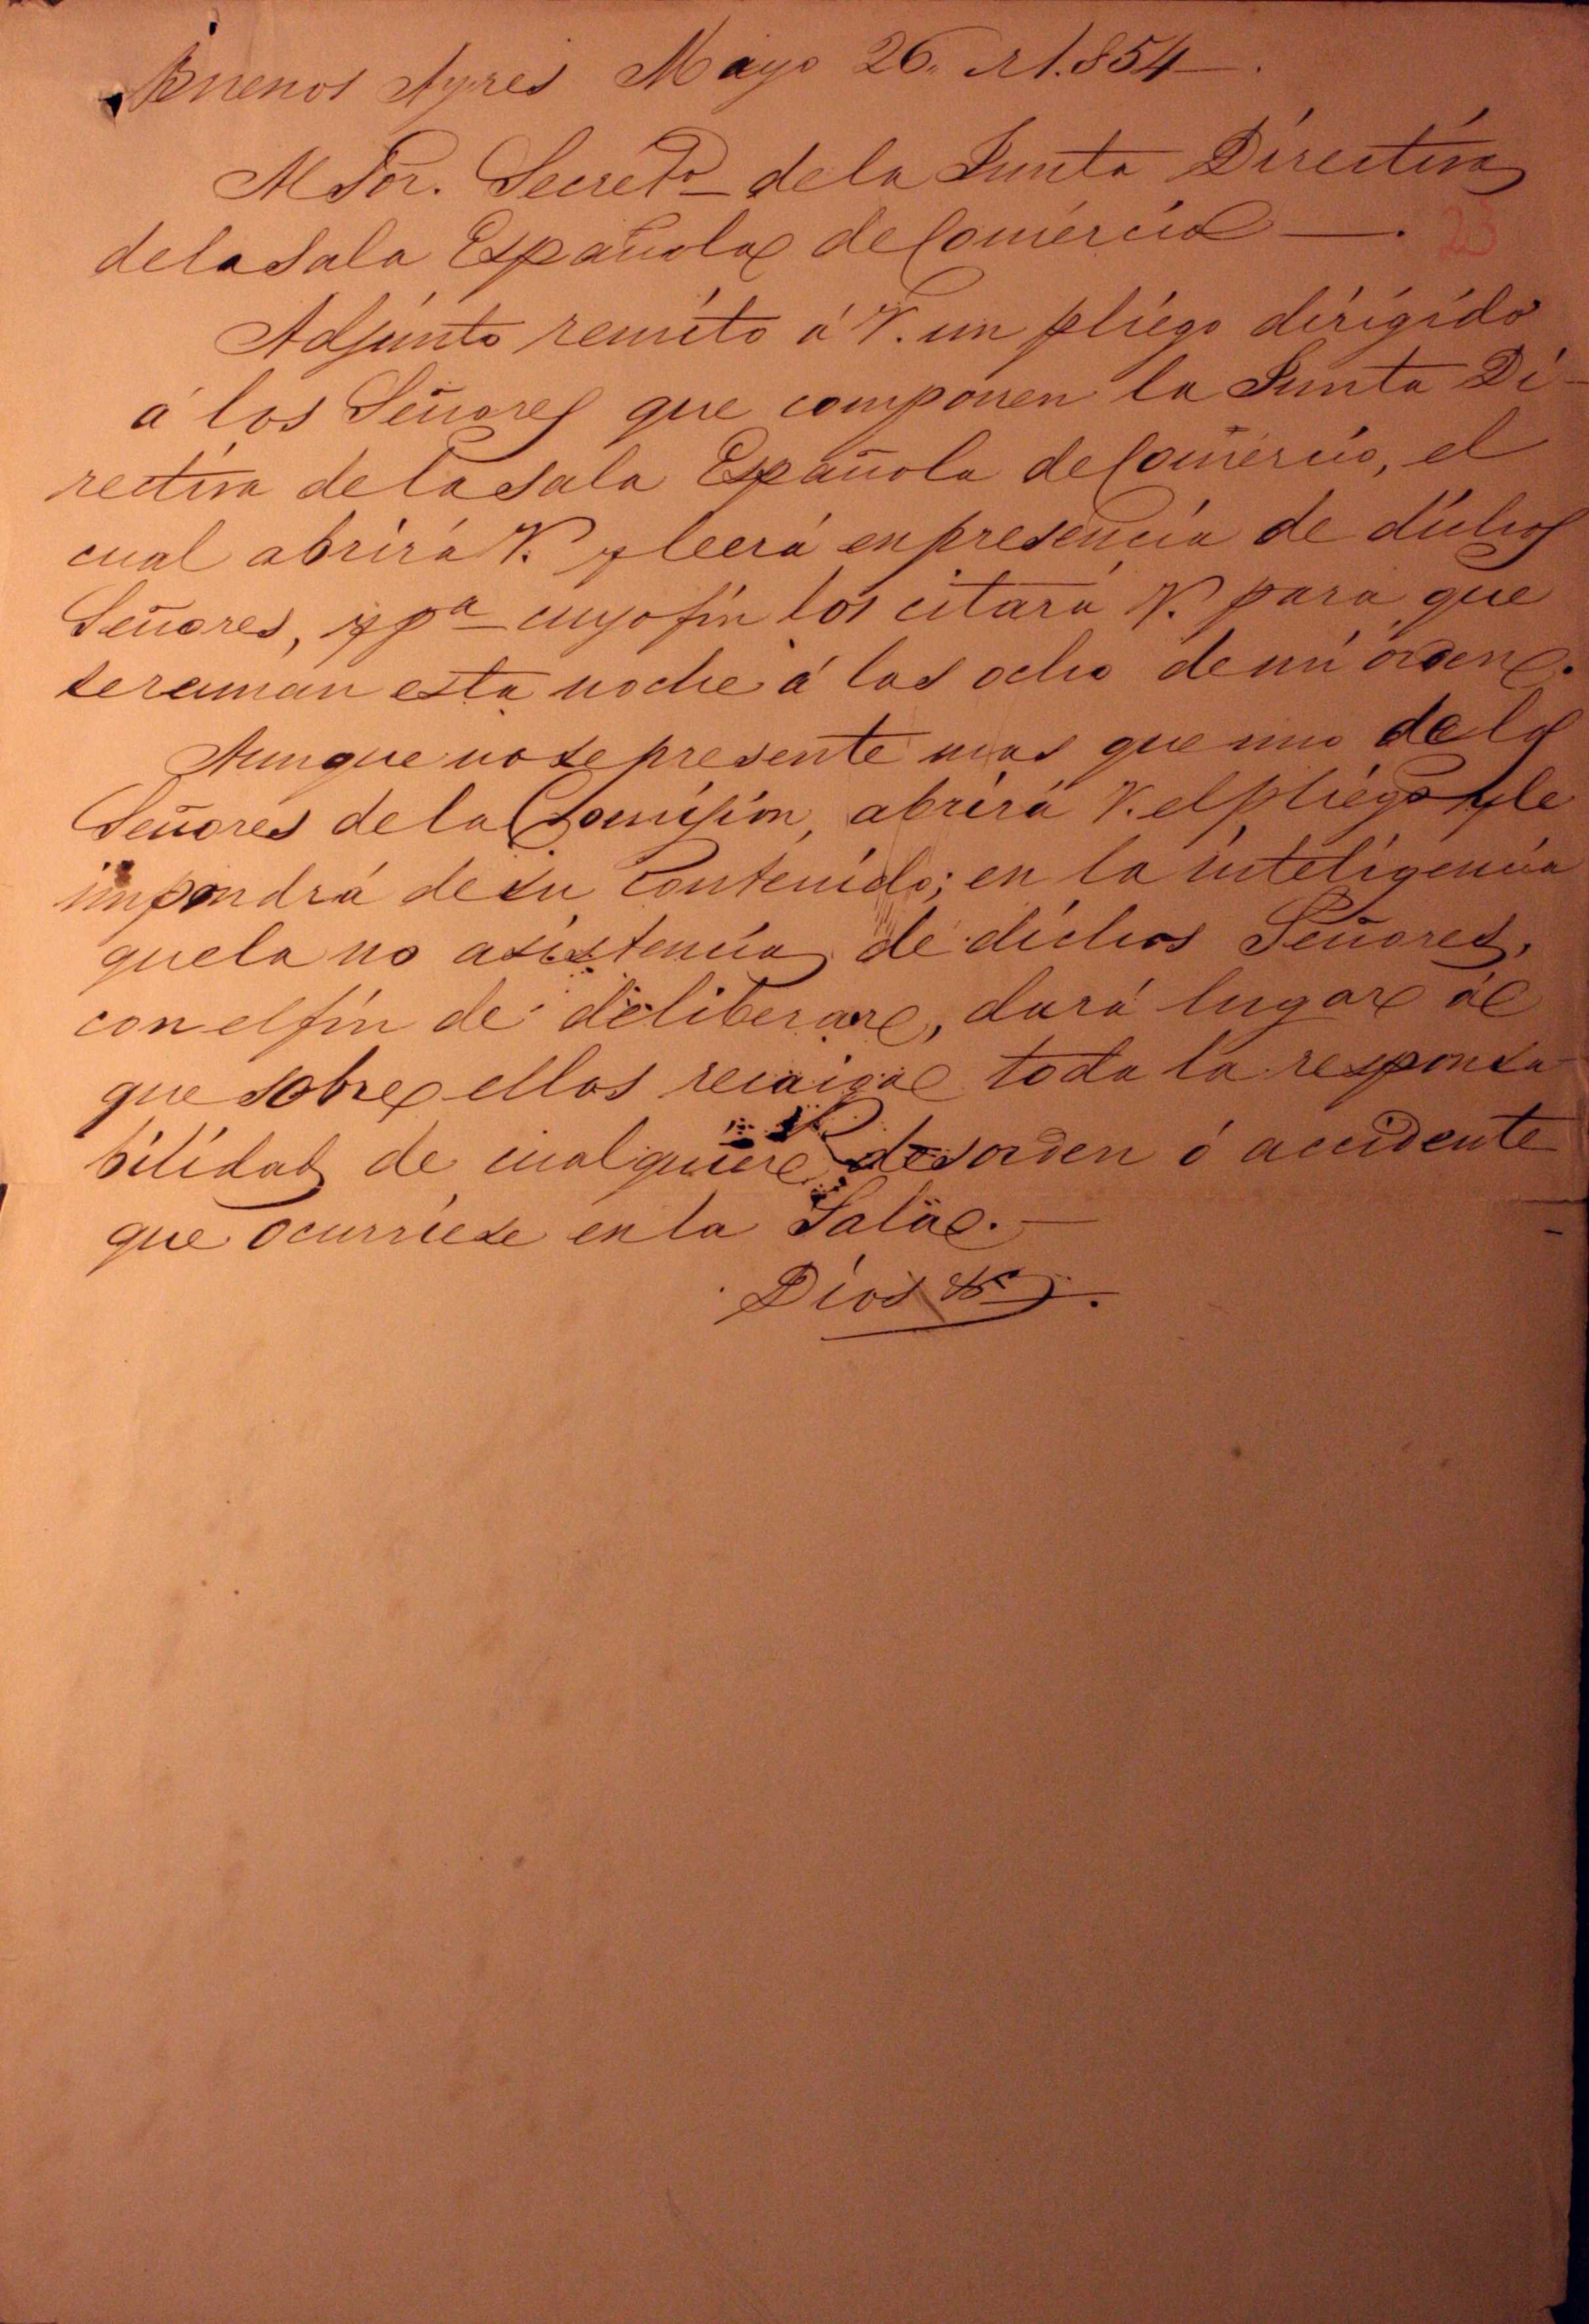 Buenos Ayres Mayo 26. de 1.854
Al Sor. Secret.o de la Junta Directiva
de la Sala Española de Comercio
23
Adjunto remito á V. un pliego dirigido
á los Señores que componen la Junta Di-
rectiva de la Sala Española de Comercio, el
cual abrirá V. y leerá en presencia de dichos
Señores, y pa cuyo fin los citará V. para que
se reunan esta noche á las ocho de mi orden.
Aunque no se presente mas que uno de los
Señores de la Comision, abrirá V. el pliego y le
impondrá de su contenido; en la inteligencia
que la no asistencia de dichos Señores,
con el fin de deliberar, dará lugar á
que sobre ellos recaiga toda la responsa-
bilidad de cualquier desorden ó accidente
que ocurriese en la Sala.
Dios &a.